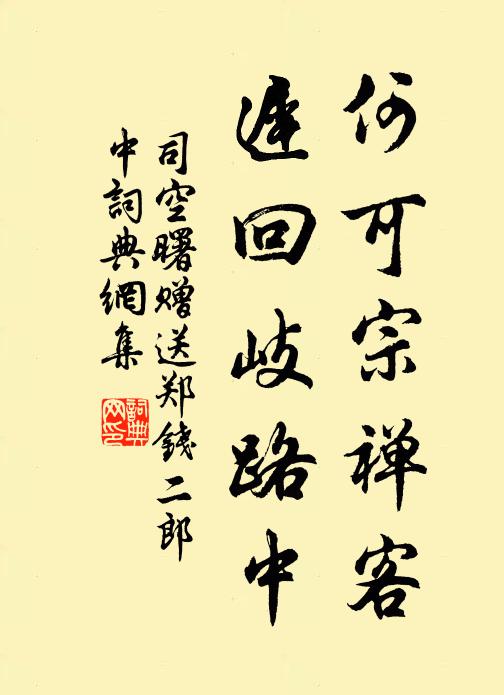 何可宗禅客
遲回歧路中
司空曙赠送郑錢二郎
中詞典網集
詞典
网印